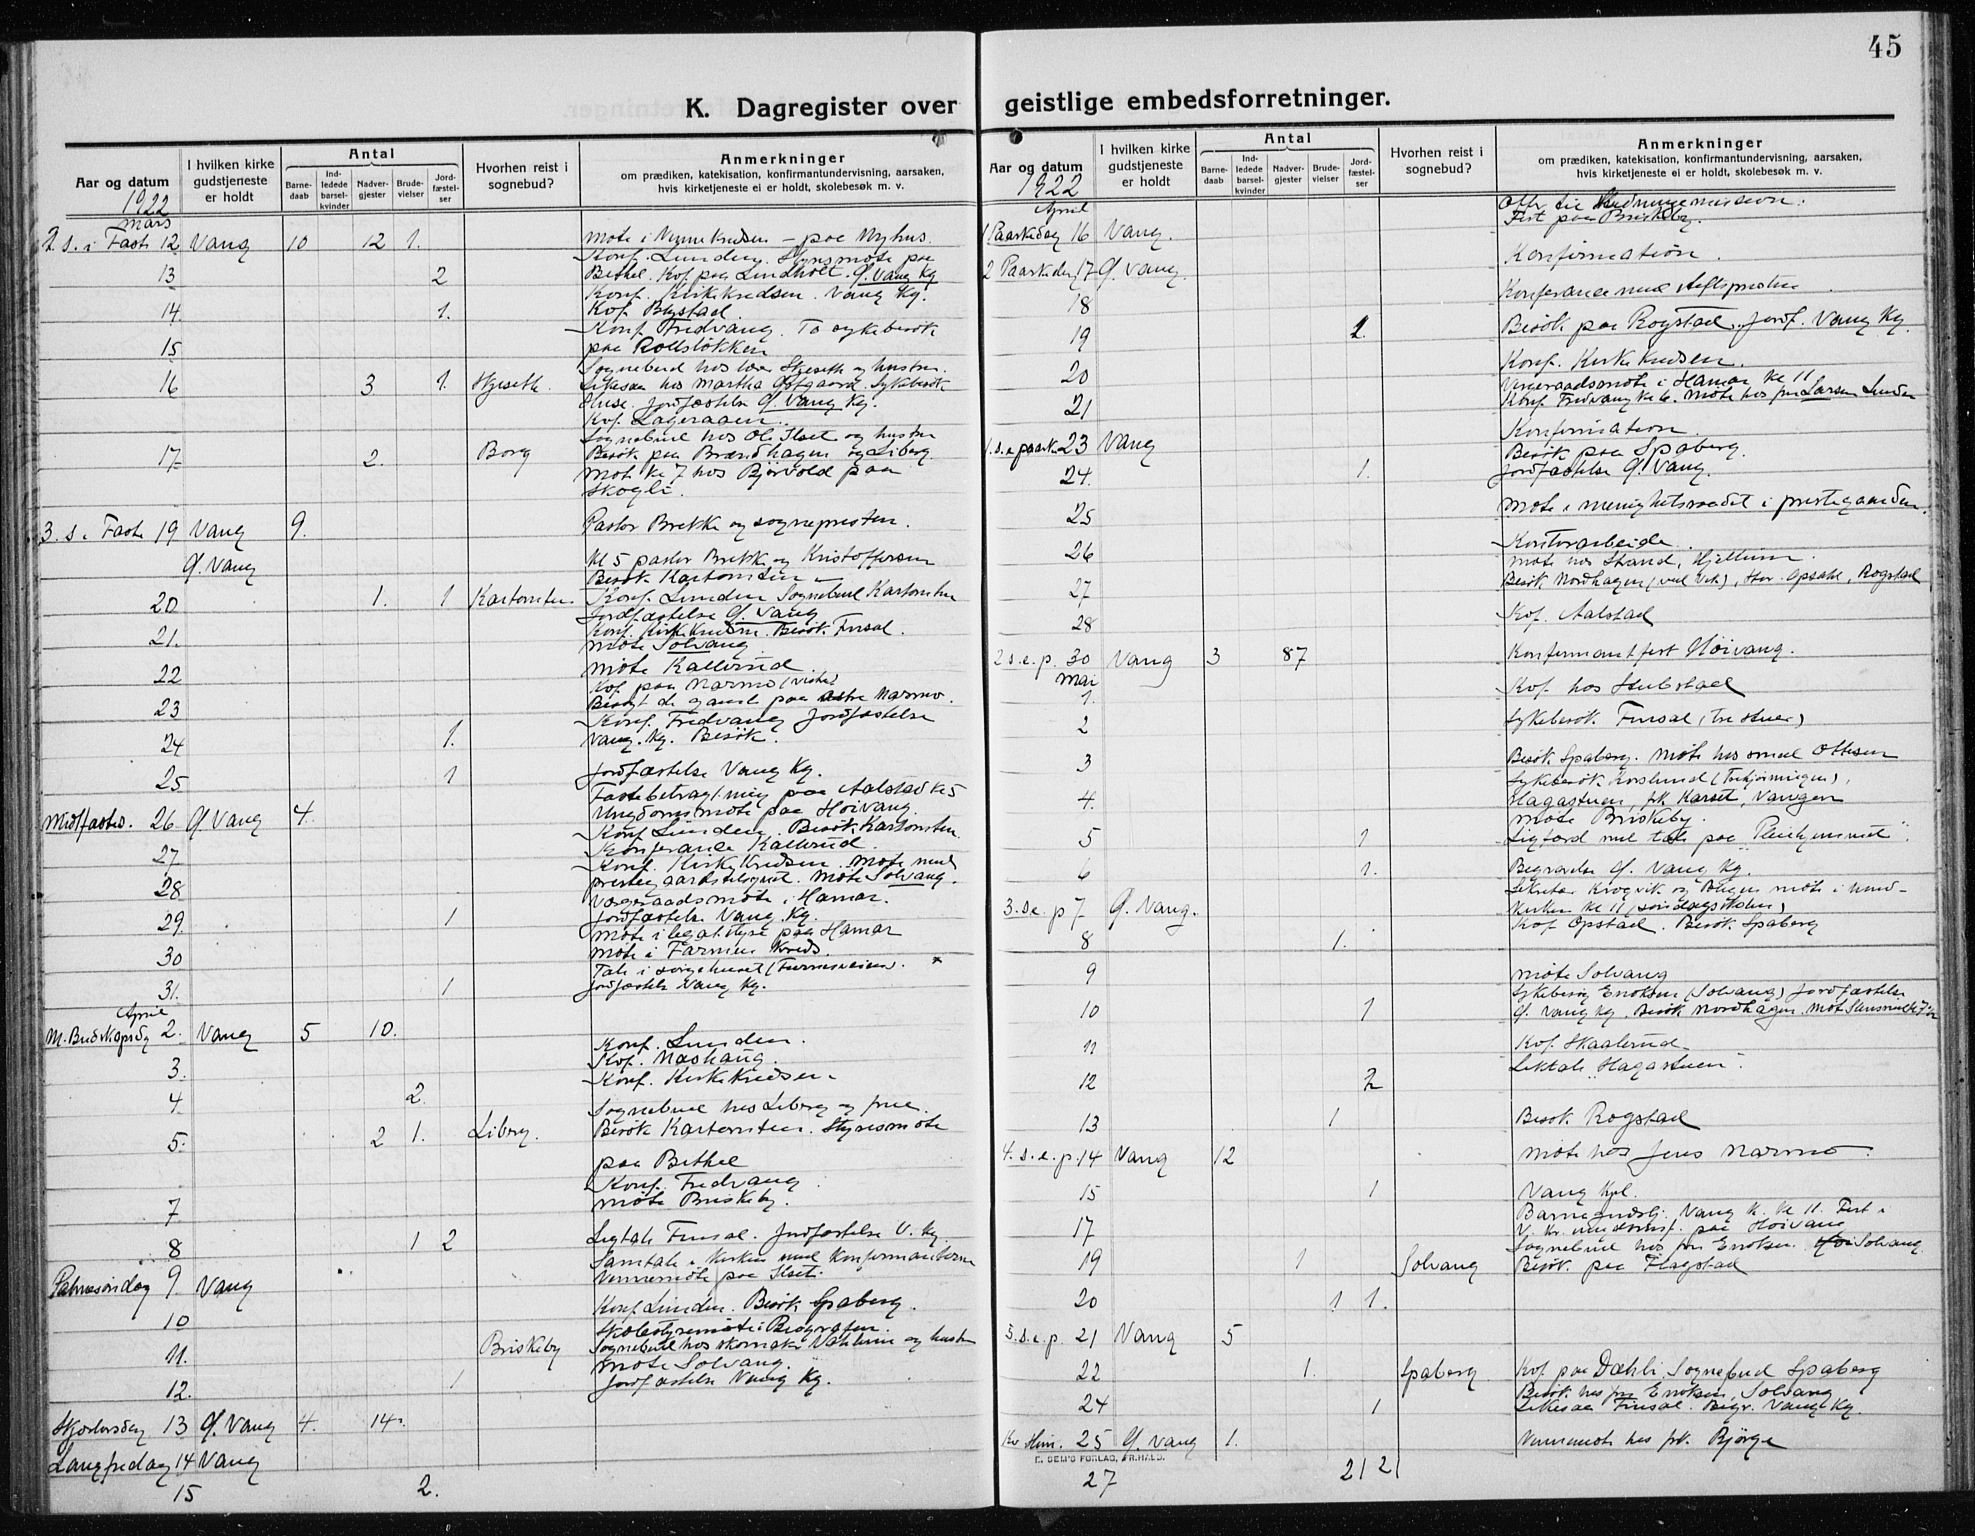 45
K. Dagregister over geistlige embedsforretninger.
Aar og datum
I hvilken kirke gudstjeneste er holdt
Antal
Barne-daab
Ind-ledede barsel-kvinder
Nadver-gjester
Brude-vielser
Jord-fæstel-ser
Hvorhen reist i sognebud?
Anmerkninger
om prædiken, katekisation, konfirmantundervisning, aarsaken,
hvis kirketjeneste ei er holdt, skolebesøk m. v.
1922
mars
2. s. i Faste 12 Vang 10 12 1. Møte i Vinne kredsen – paa Nyhus.
Konf. Lunden. Styresmøte paa
13 2 Bethel. Kof. paa Lindholt. Ø. Vang Kg
Konf. Kirkekredsen. Vang Kg.
14 1. Kof. Bystad
Konf. Fredvang. To sykebesøk
15 paa Rollsløkken
Sognebud hos lærer Hjeseth og hustru.
16 3 1. Hjeseth. Liksaa hos Martha Sykebesøk
Huse. Jordfæstelse Ø. Vang Kg.
Kof. Lageraaen.
Sognebud hos Ole Ilset og hustru
17 2. Borg Besøk paa Brændhagen og Liberg
Møte kl 7 hos Bjørvold paa
Skogli.
3. s. i Faste 19 Vang 9. Pastor Brekke og sognepresten.
Ø. Vang Kl 5 pastor Brekke og Kristoffersen
Besøk Kartomten
20 1. 1 Kartomten Konf. Lunden Sognebud Kartomten
Jordfæstelse Ø. Vang
21. Konf. Kirkekredsen. Besøk Finsal.
Møte Solvang
22 Møte Kallerud.
Kof paa Narmo
23 Besøgt de gamle paa Narmo.
Konf. Fredvang Jordfæstelse
24 1. Vang Kg. Besøk.
25 1 Jordfæstelse Vang Kg.
Fastebetragtning paa Aalstad kl 5
Midfaste. 26 Ø. Vang 4. Ungdomsmøte paa Høivang.
Konf Lunden. Besøk Kartomten
27 Konferance Kallerud.
Konf. Kirkekredsen. Møte med
28 prestegaardstilsynet. Møte Solvang.
Værgeraadsmøte i Hamar.
29 1 Jordfæstelse Vang Kg.
Møte i legatstyre paa Hamar
30 Møte i Farmen kreds.
Tale i sørgehuset (Furnesveien). *
31. 1 Jordfæstelse Vang Kg.
April
M. Budskapsdg 2. Vang 5 10. Konf. Lunden.
Kof. Nashaug.
3. Konf. Kirkekredsen
4 2. Sognebud hos Liberg og frue.
5. 2 1. Liberg. Besøk Kartomten. Styresmøte
paa Bethel
Konf. Fredvang
7 Møte Briskeby.
8 1 2 Ligtale Finsal. Jordfæstelse V. Kg.
Samtale i kirken med konfirmanterne
Palmesøndag 9. Vang Vennemøte paa Ilset.
10 Konf Lunden. Besøk Spaberg.
Skolestyremøte i
11. Briskeby Sognebud hos skomaker og hustru
Møte Solvang.
12. 1 Jordfæstelse Vang Kg.
Skjærtorsdag 13 Ø. Vang 4. 14.
Langfredag 14 Vang
15 2.
Aar og datum
I hvilken kirke gudstjeneste er holdt
Antal
Barne-daab
Ind-ledede barsel-kvinder
Nadver-gjester
Brude-vielser
Jord-fæstel-ser
Hvorhen reist i sognebud?
Anmerkninger
om prædiken, katekisation, konfirmantundervisning, aarsaken,
hvis kirketjeneste ei er holdt, skolebesøk m. v.
1922
April
Offer til Hedningemissionen.
1 Paaskedag 16 Vang. Fest paa Briskeby.
2 Paaskedag 17 Ø. Vang. Konfirmation.
18 Konferance med stiftsprosten
19 2. Besøk paa Rogstad. Jordf. Vang Kg.
20 Konf. Kirkekredsen.
Værgeraadsmøte i Hamar kl 11
21 Konf. Fredvang kl 6. Møte hos fru Larsen Lunden
1. s. e paask. 23 Vang Konfirmation.
Besøk paa Spaberg.
24. 1. Jordfæstelse Ø. Vang.
25 Møte i menighetsraadet i prestegaarden.
26 Kontorarbeide.
Møte hos Strand, Hjellum.
27 Besøk Nordhagen (ved Vik), Stor. Opsahl, Rogstad
28 Kof. Aalstad
2 s. e. p. 30 Vang 3 87 Konfirmantfest Høivang.
Mai
1. Kof. hos Hubstad
2 Sykebesøk Finsal (tre stuer)
3 Besøk Spaberg. Møte hos smed Ottesen
Sykebesøk Korslund
4. Hagastuen, frk. Karset, Vangen
Møte Briskeby.
5 1 Ligfærd med tale paa
6 1. Begravelse Ø. Vang Kg.
Sekretær Krogvik og møte i
3. s e. p 7 Ø. Vang. kirken kl 11 (søndagsskolen)
8 1. Kof Opstad. Besøk Spaberg
9 Møte Solvang
Sykebesøg Enoksen (Solvang) Jordfæstelse
10 1 Ø. Vang Kg. Besøk Nordhagen. Møte
11 Kof. Skaalerud.
12 2 Liktale Hagastuen.
13 1 Besøk Rogstad
4. s. e. p. 14 Vang 12 Møte hos Jens Narmo.
15 1 Vang Kpl.
17 Barnegudstj. Vang K. kl 11. Fest i
paa Høivang
Sognebud hos fru Enoksen Solvang.
19 1 Solvang Besøk paa Flagstad
20 1 1.
5. s. e. p. 21 Vang 5
22 1. Spaberg Kof. paa Dæhli. Sognebud Spaberg
Besøk hos fru Enoksen, Solvang
24 1 Likesaa Finsal. Begr. Vang Kg.
Kr Him. 25 Ø. Vang 1. Vennemøte hos frk. Bjørge
E. SEM'S FORLAG, FR.HALD.
27 2 1 2